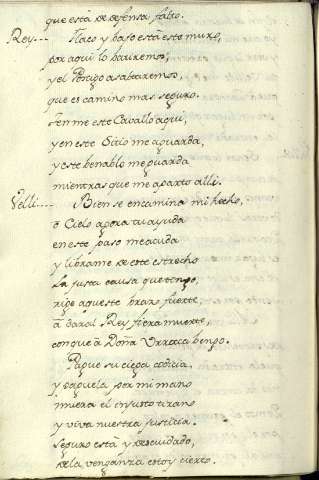 que està de defensa falto.
Rey--- Flaco y bajo està este muro,
por aqui lo
y el Postigo asaltaremos,
que es camino mas seguro.
Tenme este Cavallo aqui,
y en este Sitio me aguarda,
y este benablo me guarda
mientras que me aparto alli.
Velli--- Bien se encamina mi hecho,
ò Cielo agora tu ayuda
en este paso me acuda
y librame de este estrecho
La justa causa que tengo,
rige aqueste brazo fuerte,
à dar al Rey fiera muerte,
con que à Doña Urraca bengo.
Pague su ciega codicia
y por mi mano
muera el injusto tirano
y viva nuestra justicia.
Seguro està y descuidado,
de la venganza estoy cierto.